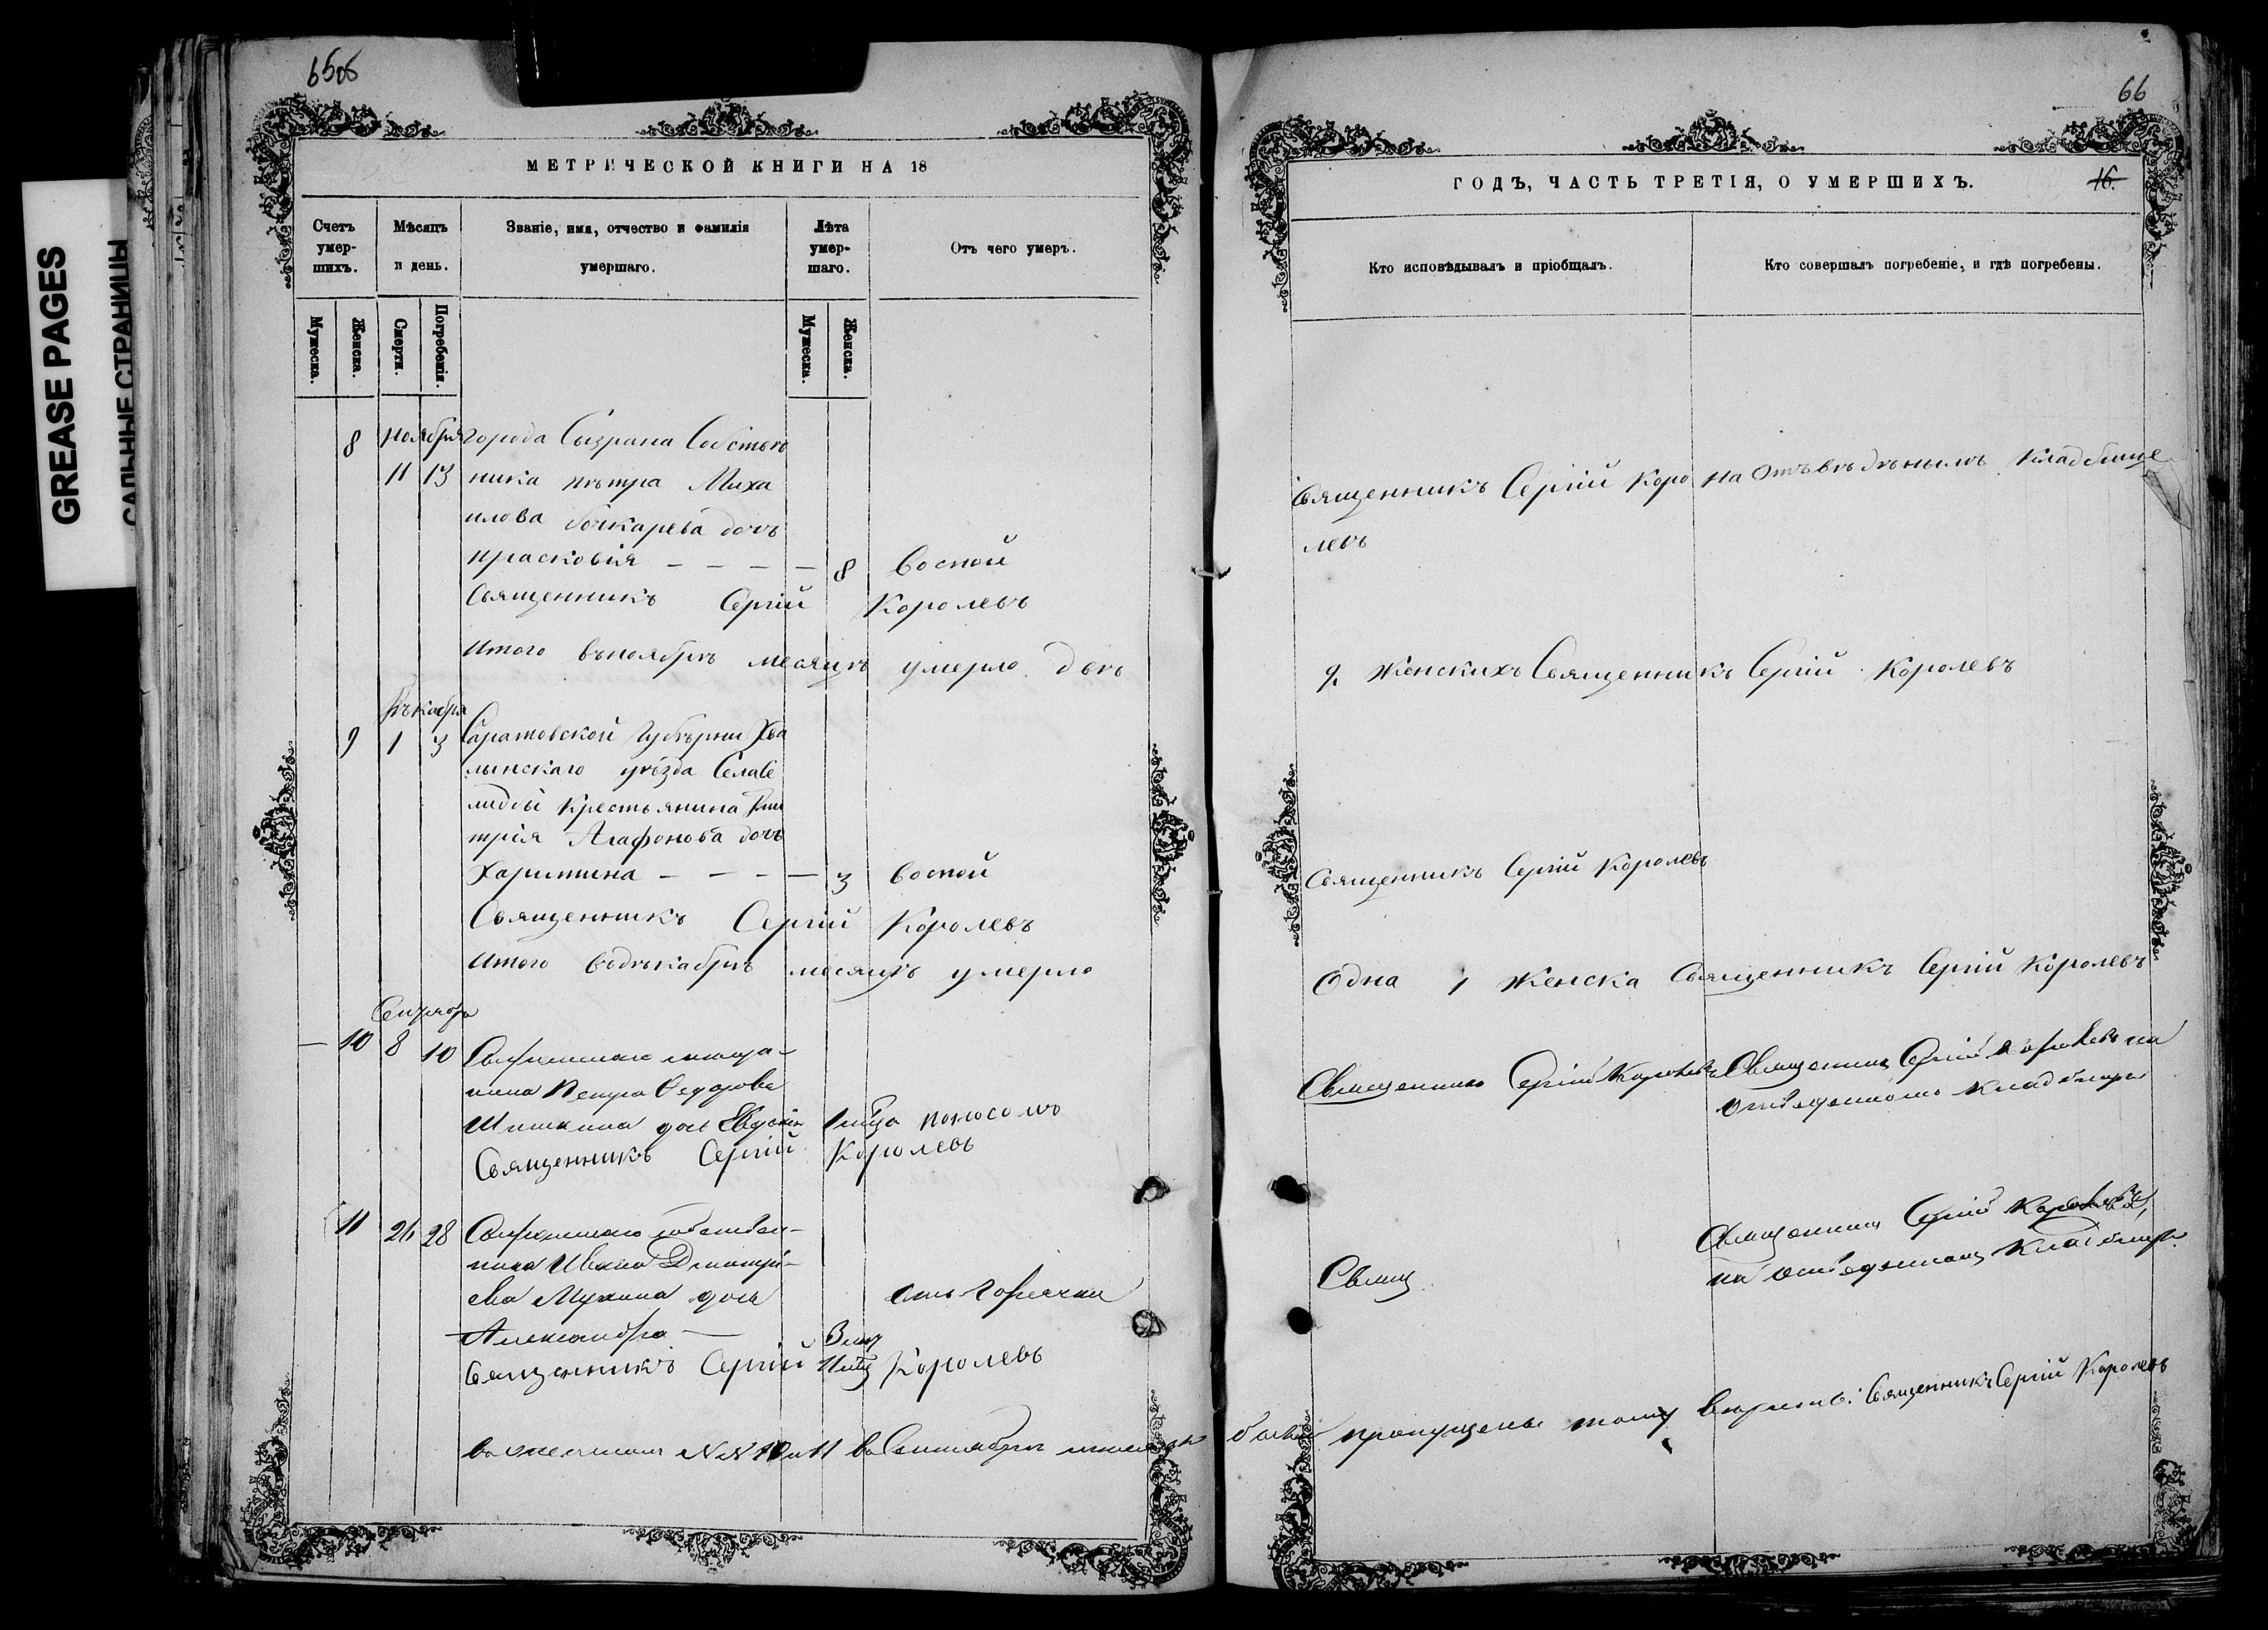 65об
66
GREASE PAGES
САЛЬНЫЕ СТРАНИЦЫ
МЕТРИЧЕСКОЙ КНИГИ НА 18
Счетъ умер-шихъ.
Мужеска.
Женска.
Мѣсяцъ и день.
Смерти.
Погребенія.
Званіе, имя, отчество и фамилія умершаго.
Лѣта умер-шаго.
Мужеска.
Женска.
Отъ чего умеръ.
8 ноября города Сызрана Собствен
11 13 ника пѣтра Миха
илова бочкарева дочь
прасковія — — — — 8 воспой
Священникъ Сергій Королевъ
Итого въноябрѣ месяцѣ умерло двѣ
Дѣкабря
9 1 3 Саратовской губѣрни Хва
лынскаго уѣзда Села
крестьянина Дми
трія Агафонова дочь
Харитина — — — — 3 воспой
Священникъ Сергій Королевъ
Итого водѣкабрѣ месяцѣ умерло
Сентябрь
— 10 8 10 меща-
нина Петра Федорова
Шишкина дочь поносомъ
Священникъ Сергій Королевъ
11 26 28 собствен-
ника Ивана Дмитрі-
ева Мухина дочь отъ горячки
Александра —
Священникъ Сергій Королевъ
NN 10 и 11 въ Сентябрѣ
ГОДЪ, ЧАСТЬ ТРЕТІЯ, О УМЕРШИХЪ.
16.
Кто исповѣдывалъ и пріобщалъ.
Кто совершалъ погребеніе, и гдѣ погребены.
Священникъ Сергій Коро на отъвѣдѣнымъ кладбище
левъ
2 Женскихъ Священникъ Сергій Королевъ
Священникъ Сергій Королевъ
Одна 1 Женска Священникъ Сергій Королевъ
Священникъ Сергій Королевъ Священникъ Сергій Королевъ на
отведенномъ кладбищѣ
Священникъ Сергій Королевъ,
Свящ на отведенномъ кладбищѣ.
пропущены Священникъ Сергій Королевъ